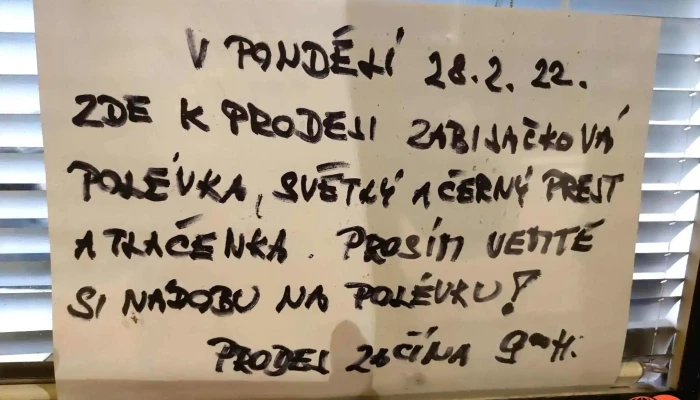 V PONDĚLÍ 28.2. 22.
ZDE K PRODEJI ZABIJAČKOVÁ
POLÉVKA, SVĚTLÝ A ČERNÝ PREJT
A TLAČENKA. PROSÍM VEMTĚ
SI NÁDOBU NA POLÉVKU!
PRODEJ ZAČÍNA 9⁰⁰H.